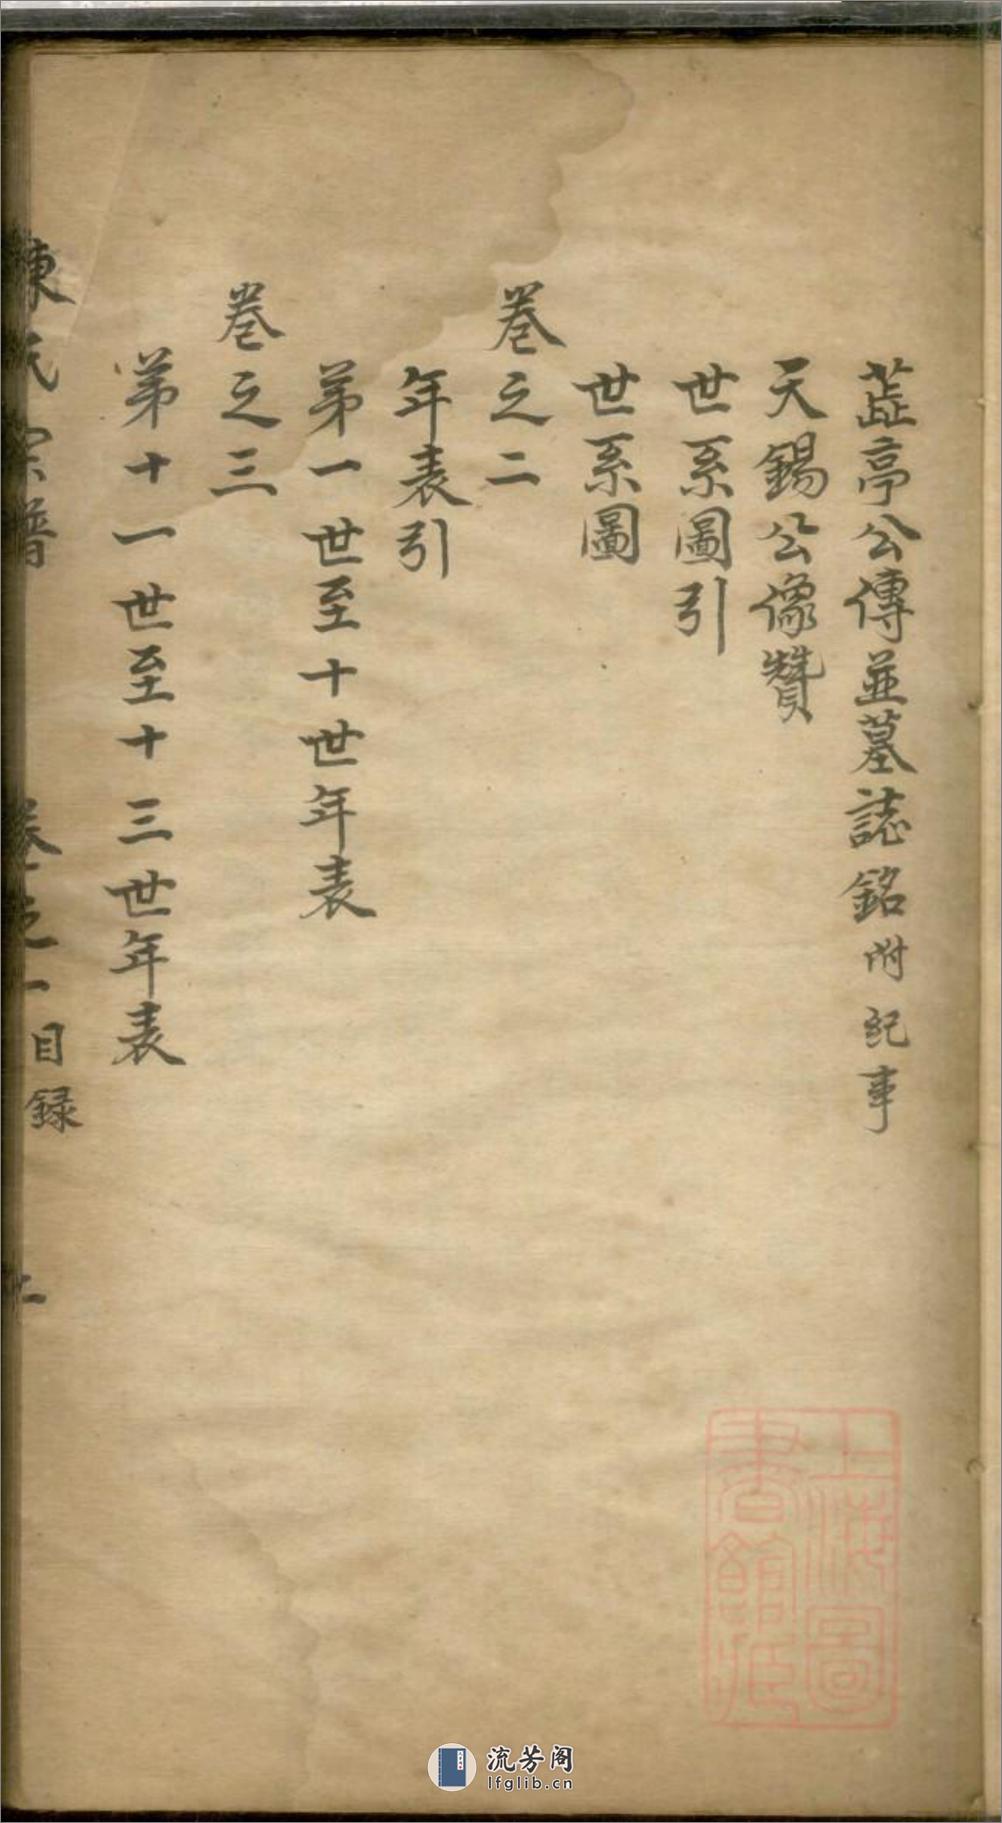 蕋亭公傳並墓誌銘附紀事
天錫公像贊
世系圖引
世系圖
卷之二
年表引
第一世至十世年表
卷之三
第十一世至十三世年表
陳氏宗譜 卷之一目録 二
上海圖書館藏
流芳阁
lfglib.cn